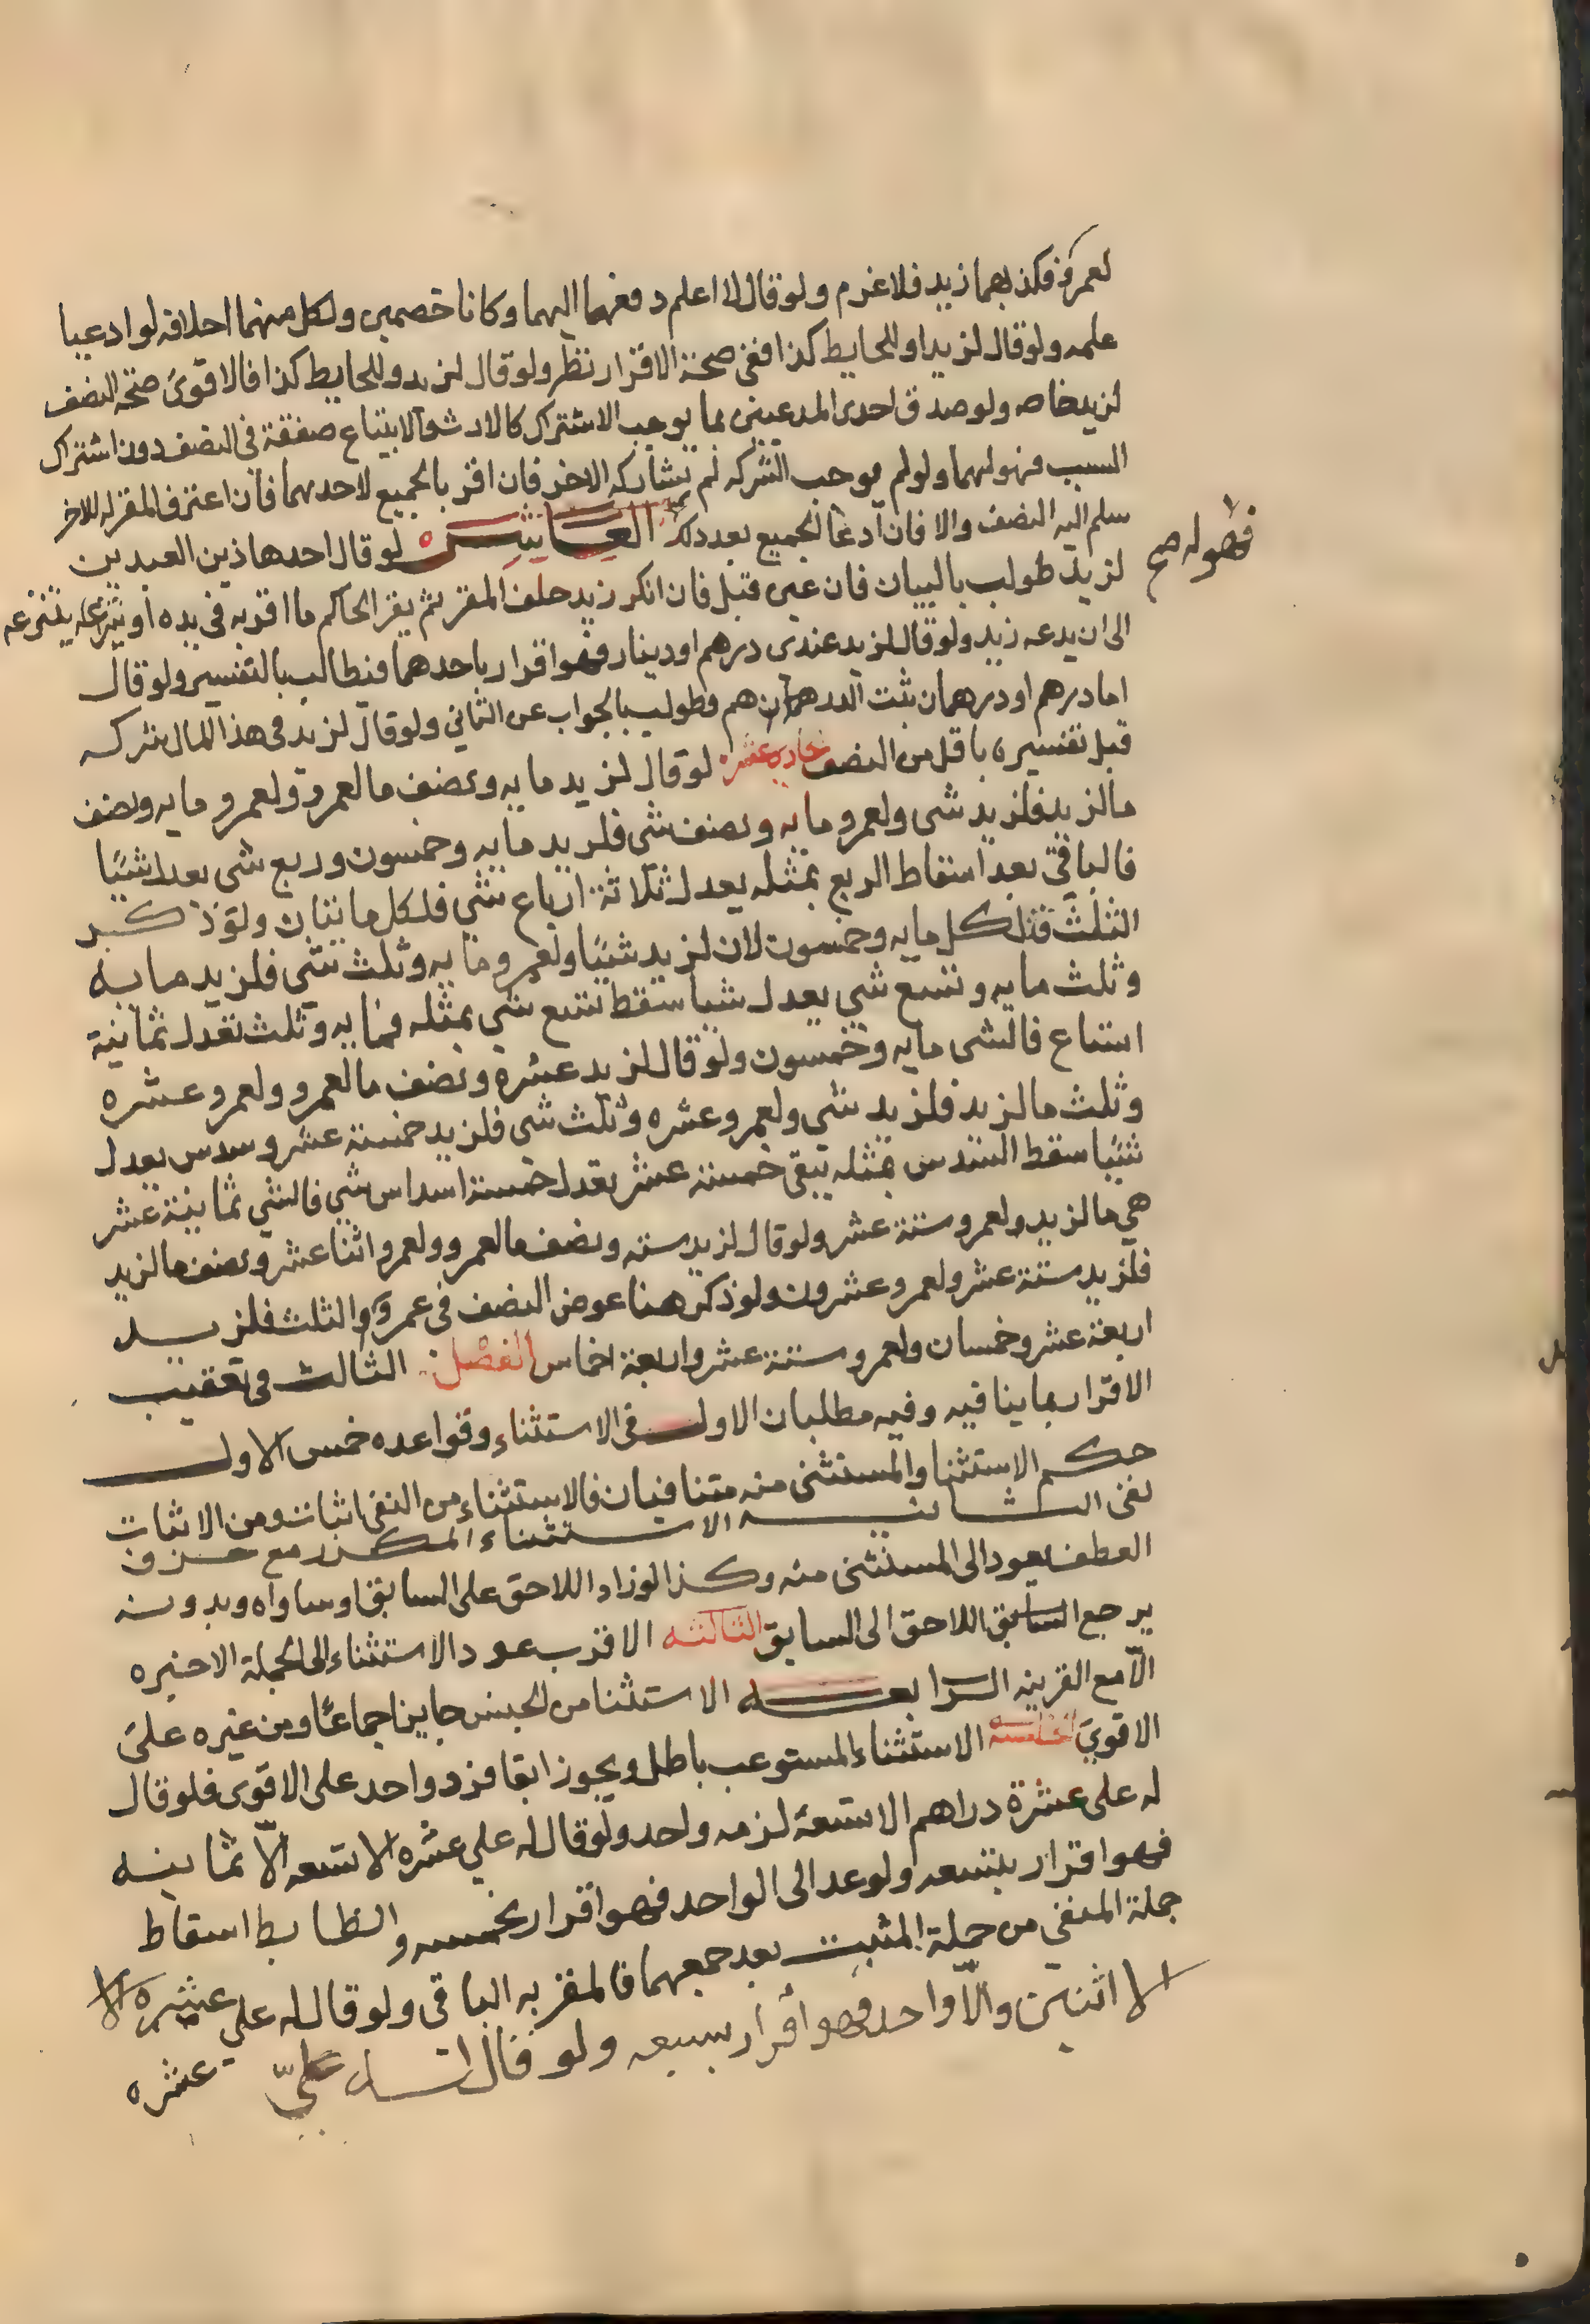 لعمرو فكذبهما زيد فلا غرم ولو قال لا اعلم دفعها اليهما وكانا خصمين ولكل منهما احلافه لو ادعيا
علمه ولو قال لزيد او للحايط كذا ففي صحة الاقرار نظر ولو قال لزيد وللحايط كذا فالاقوى صحة النصف
لزيد خاصه ولو صدق احدى المدعيين بما يوجب الاشتراك كالارث والابتياع صفقة في النصف دون اشتراك
السبب فهو لهما ولو لم يوجب الشركه لم يشاركه الاخر فان اقر بالجميع لاحدهما فان اعترف المقر له للاخر
سلم اليه النصف والا فان ادعا الجميع بعد ذلك العاشر لو قال احد هاذين العبدين
فهو له صح
لزيد طولب بالبيان فان عين قبل فان انكر زيد حلف المقر ثم يقر الحاكم ما اقر به في يده او ينتزعه
الى ان يدعه زيد ولو قال لزيد عندى درهم او دينار فهو اقرار باحدهما فيطالب بالتفسير ولو قال
اما درهم او درهمان ثبت الدرهم وطولب بالجواب عن الثاني ولو قال لزيد في هذا المال شركه
قبل تفسيره باقل من النصف حادى عشر لو قال لزيد مايه ونصف ما لعمرو ولعمرو مايه ونصف
ما لزيد فلزيد شي ولعمرو مايه ونصف شي فلزيد مايه وخمسون وربع شي يعدل شيئا
فالباقي بعد اسقاط الربع بمثله يعدل ثلاثة ارباع شي فلكل مائتان ولو ذكر
الثلث فلكل مايه وخمسون لان لزيد شيئا ولعمرو مايه وثلث شي فلزيد مايه
وثلث مايه وتسع شي يعدل شيا سقط تسع شي بمثله فمايه وثلث تعدل ثمانية
اتساع فالشي مايه وخمسون ولو قال لزيد عشرة ونصف ما لعمرو ولعمرو عشره
وثلث ما لزيد فلزيد شي ولعمرو عشره وثلث شي فلزيد خمسة عشر وسدس يعدل
شيئا سقط السدس بمثله تبقى خمسة عشر تعدل خمسة اسداس شي فالشي ثمانية عشر
هي ما لزيد ولعمرو ستة عشر ولو قال لزيد سته ونصف ما لعمرو ولعمرو اثنا عشر ونصف ما لزيد
فلزيد ستة عشر ولعمرو عشرون ولو ذكر هنا عوض النصف في عمرو الثلث فلزيد
اربعة عشر وخمسان ولعمرو ستة عشر واربعة اخماس الفصل الثالث في تعقيب
الاقرار بما ينافيه وفيه مطلبان الاول في الاستثناء وقواعده خمس الاول
حكم الاستثنا والمستثنى منه متنافيان فالاستثناء من النفي اثبات ومن الاثبات
نفي الثانيه الاستثناء المكرر مع حرف
العطف يعود الى المستثنى منه وكذا لو زاد اللاحق على السابق او ساواه وبدونه
يرجع السابق اللاحق الى السابق الثالثه الاقرب عود الاستثناء الى الجملة الاخيره
الا مع القرينه الرابعه الاستثنا من الجنس جايز اجماعا ومن غيره على
الاقوى الخامسه الاستثناء المستوعب باطل ويجوز ابقا فرد واحد على الاقوى فلو قال
له على عشرة دراهم الا تسعة لزمه واحد ولو قال له علي عشره الا تسعه الا ثمانيه
فهو اقرار بتسعه ولو عد الى الواحد فهو اقرار بخمسه والظابط اسقاط
جملة المنفي من جملة المثبت بعد جمعهما فالمقر به الباقى ولو قال له علي عشره الا
الا اثنين والا واحد فهو اقرار بسبعه ولو قال له عليّ عشره